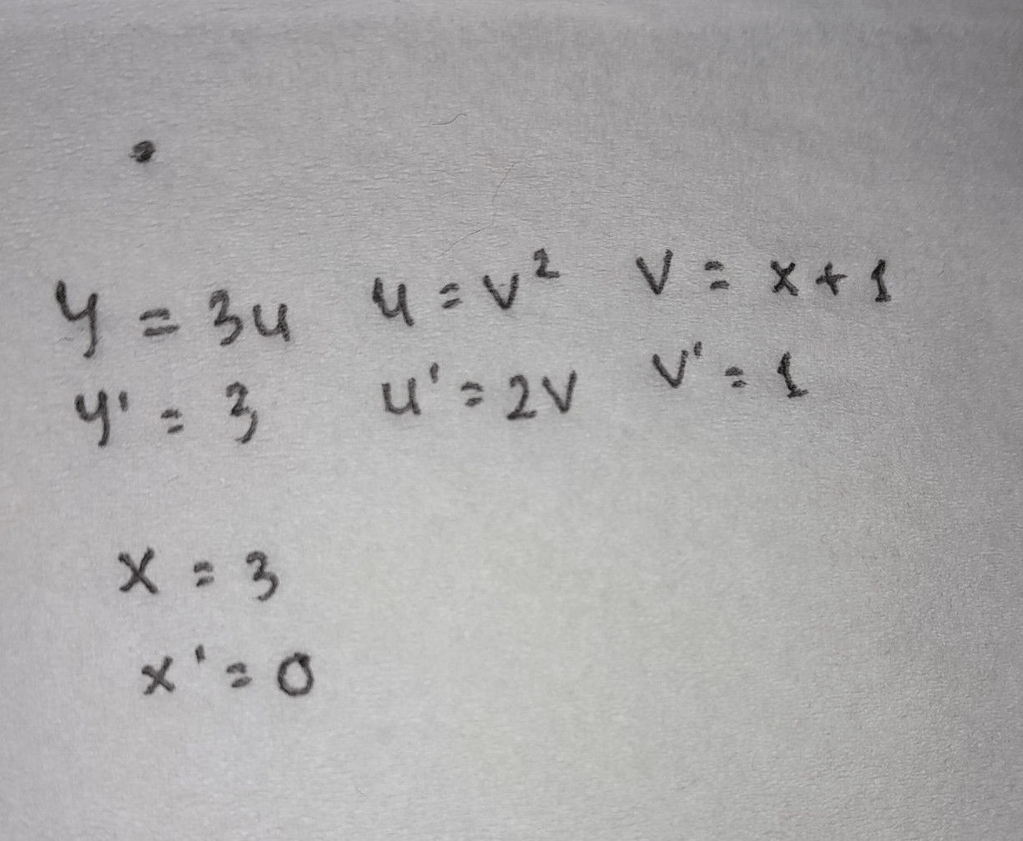 y = 3u u = v² v = x + 1
y' = 3 u' = 2v v' = 1
x = 3
x' = 0